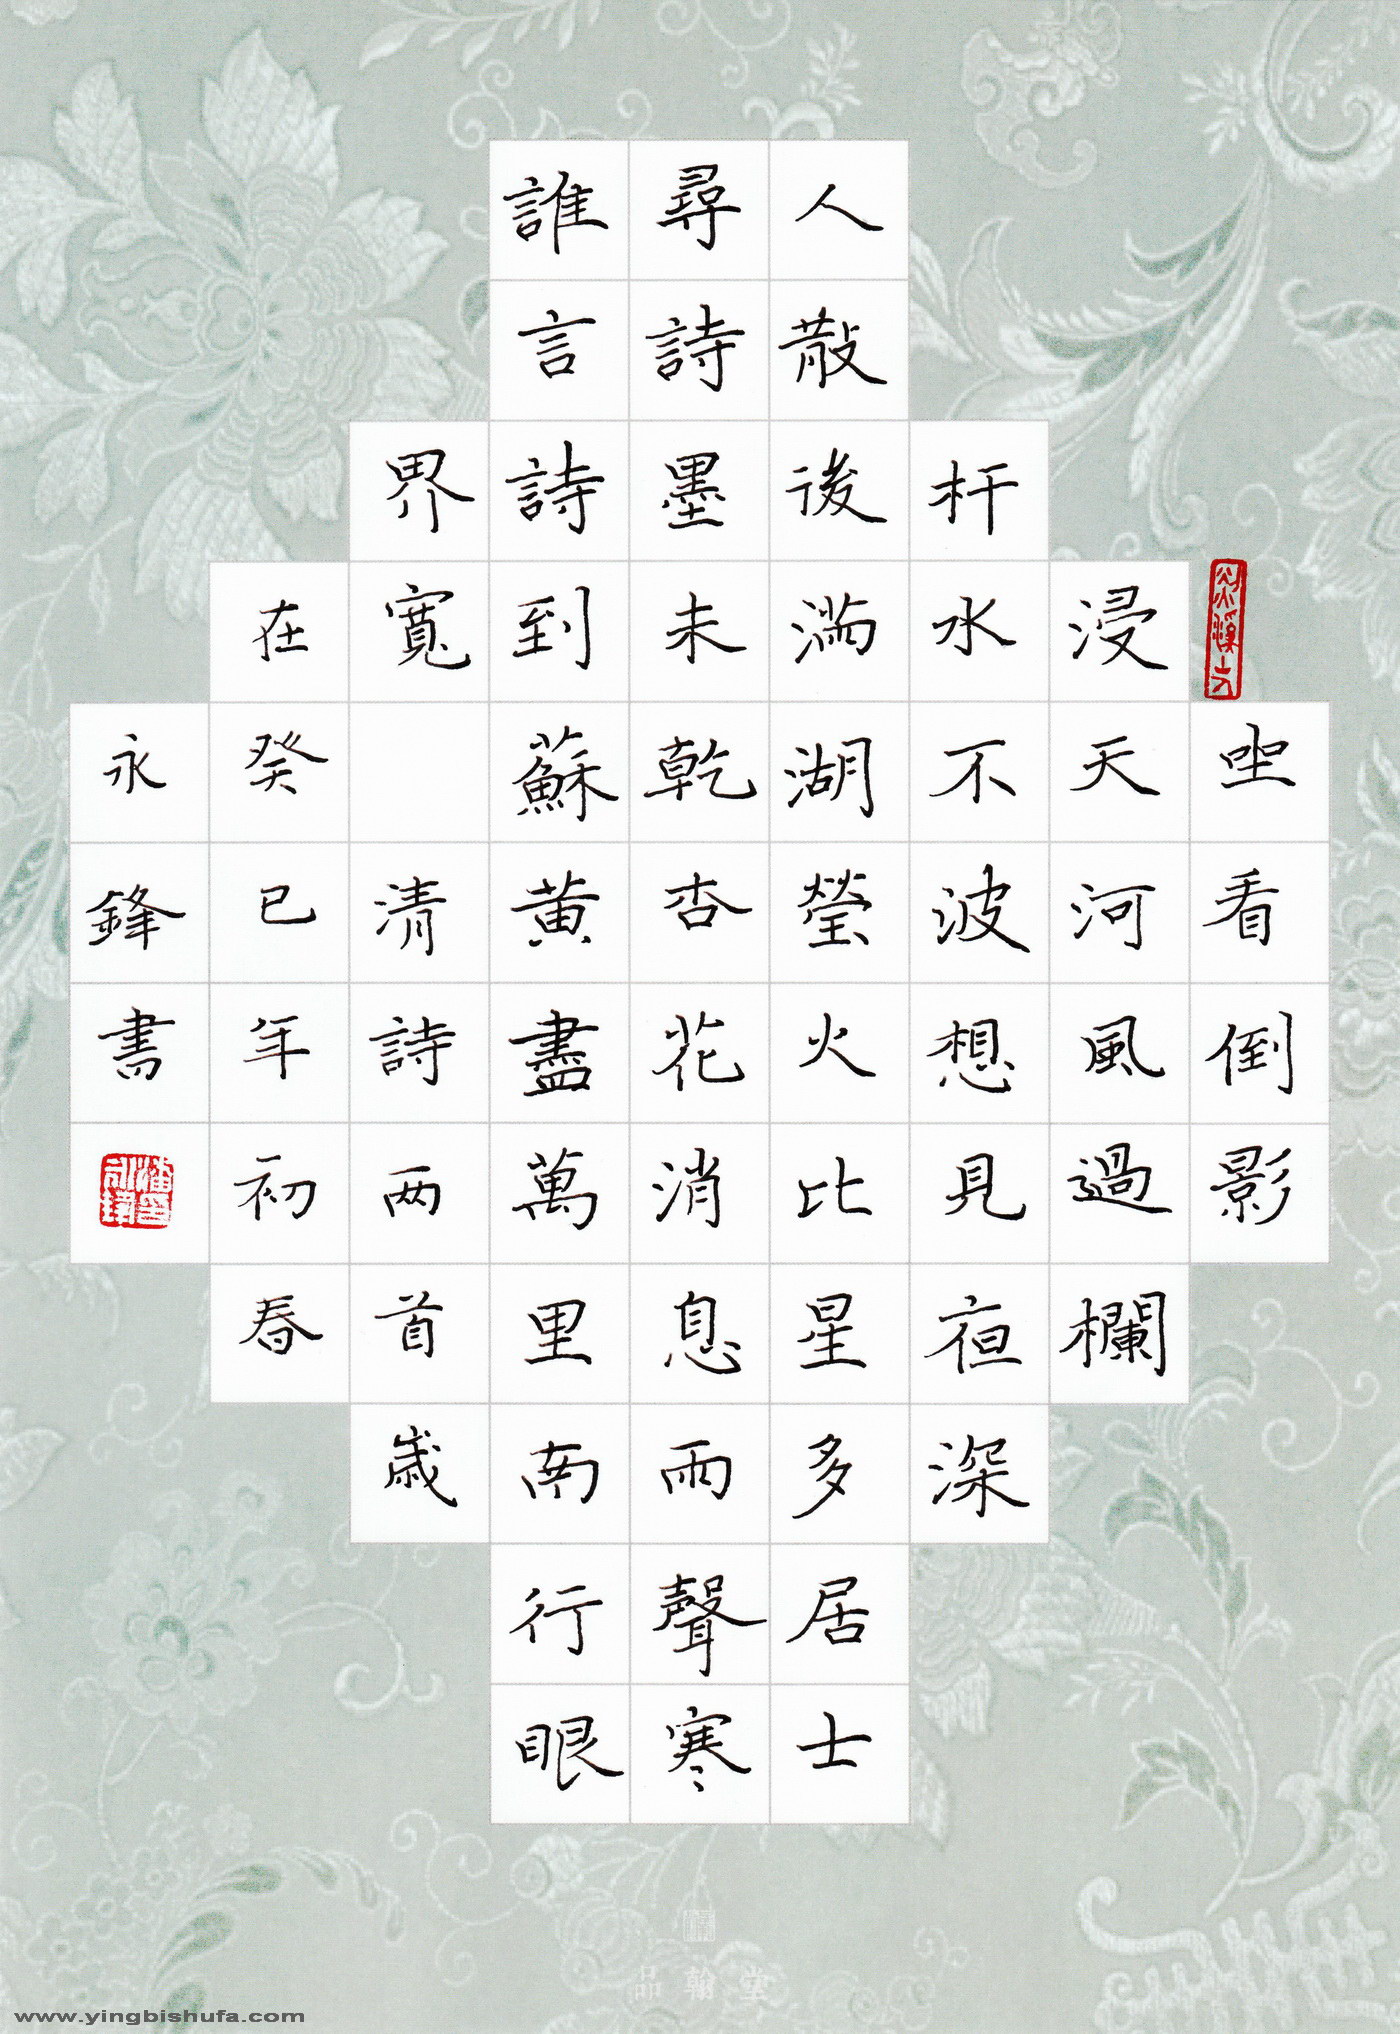 坐看倒影
浸天河風過欄
杆水不波想見夜深
人散後滿湖瑩火比星多居士
尋詩墨未乾杏花消息雨聲寒
誰言詩到蘇黄盡萬里南行眼
界寬 清詩两首歲
在癸巳年初春
永鋒書
品翰堂
www.yingbishufa.com